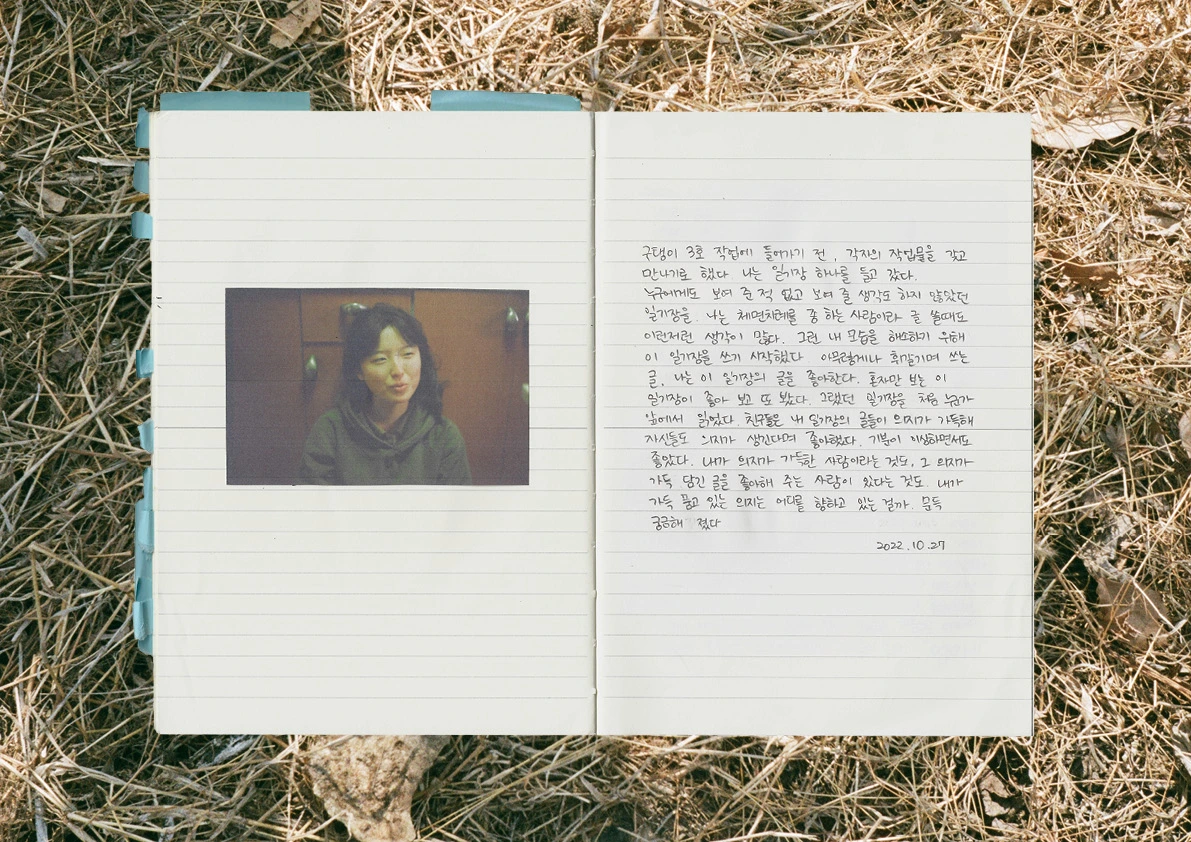 구탱이 3호 작업에 들어가기 전, 각자의 작업물을 갖고
만나기로 했다. 나는 일기장 하나를 들고 갔다.
누구에게도 보여 준 적 없고 보여 줄 생각도 하지 않았던
일기장을. 나는 체면치레를 좀 하는 사람이라 글 쓸때도
이런저런 생각이 많다. 그런 내 모습을 해소하기 위해
이 일기장을 쓰기 시작했다. 아무렇게나 휘갈기며 쓰는
글, 나는 이 일기장의 글을 좋아한다. 혼자만 보는 이
일기장이 좋아 보고 또 봤다. 그랬던 일기장을 처음 누군가
앞에서 읽었다. 친구들은 내 일기장의 글들이 의지가 가득해
자신들도 의지가 생긴다며 좋아했다. 기분이 이상하면서도
좋았다. 내가 의지가 가득한 사람이라는 것도, 그 의지가
가득 담긴 글을 좋아해 주는 사람이 있다는 것도. 내가
가득 품고 있는 의지는 어디를 향하고 있는 걸까. 문득
궁금해 졌다
2022.10.27